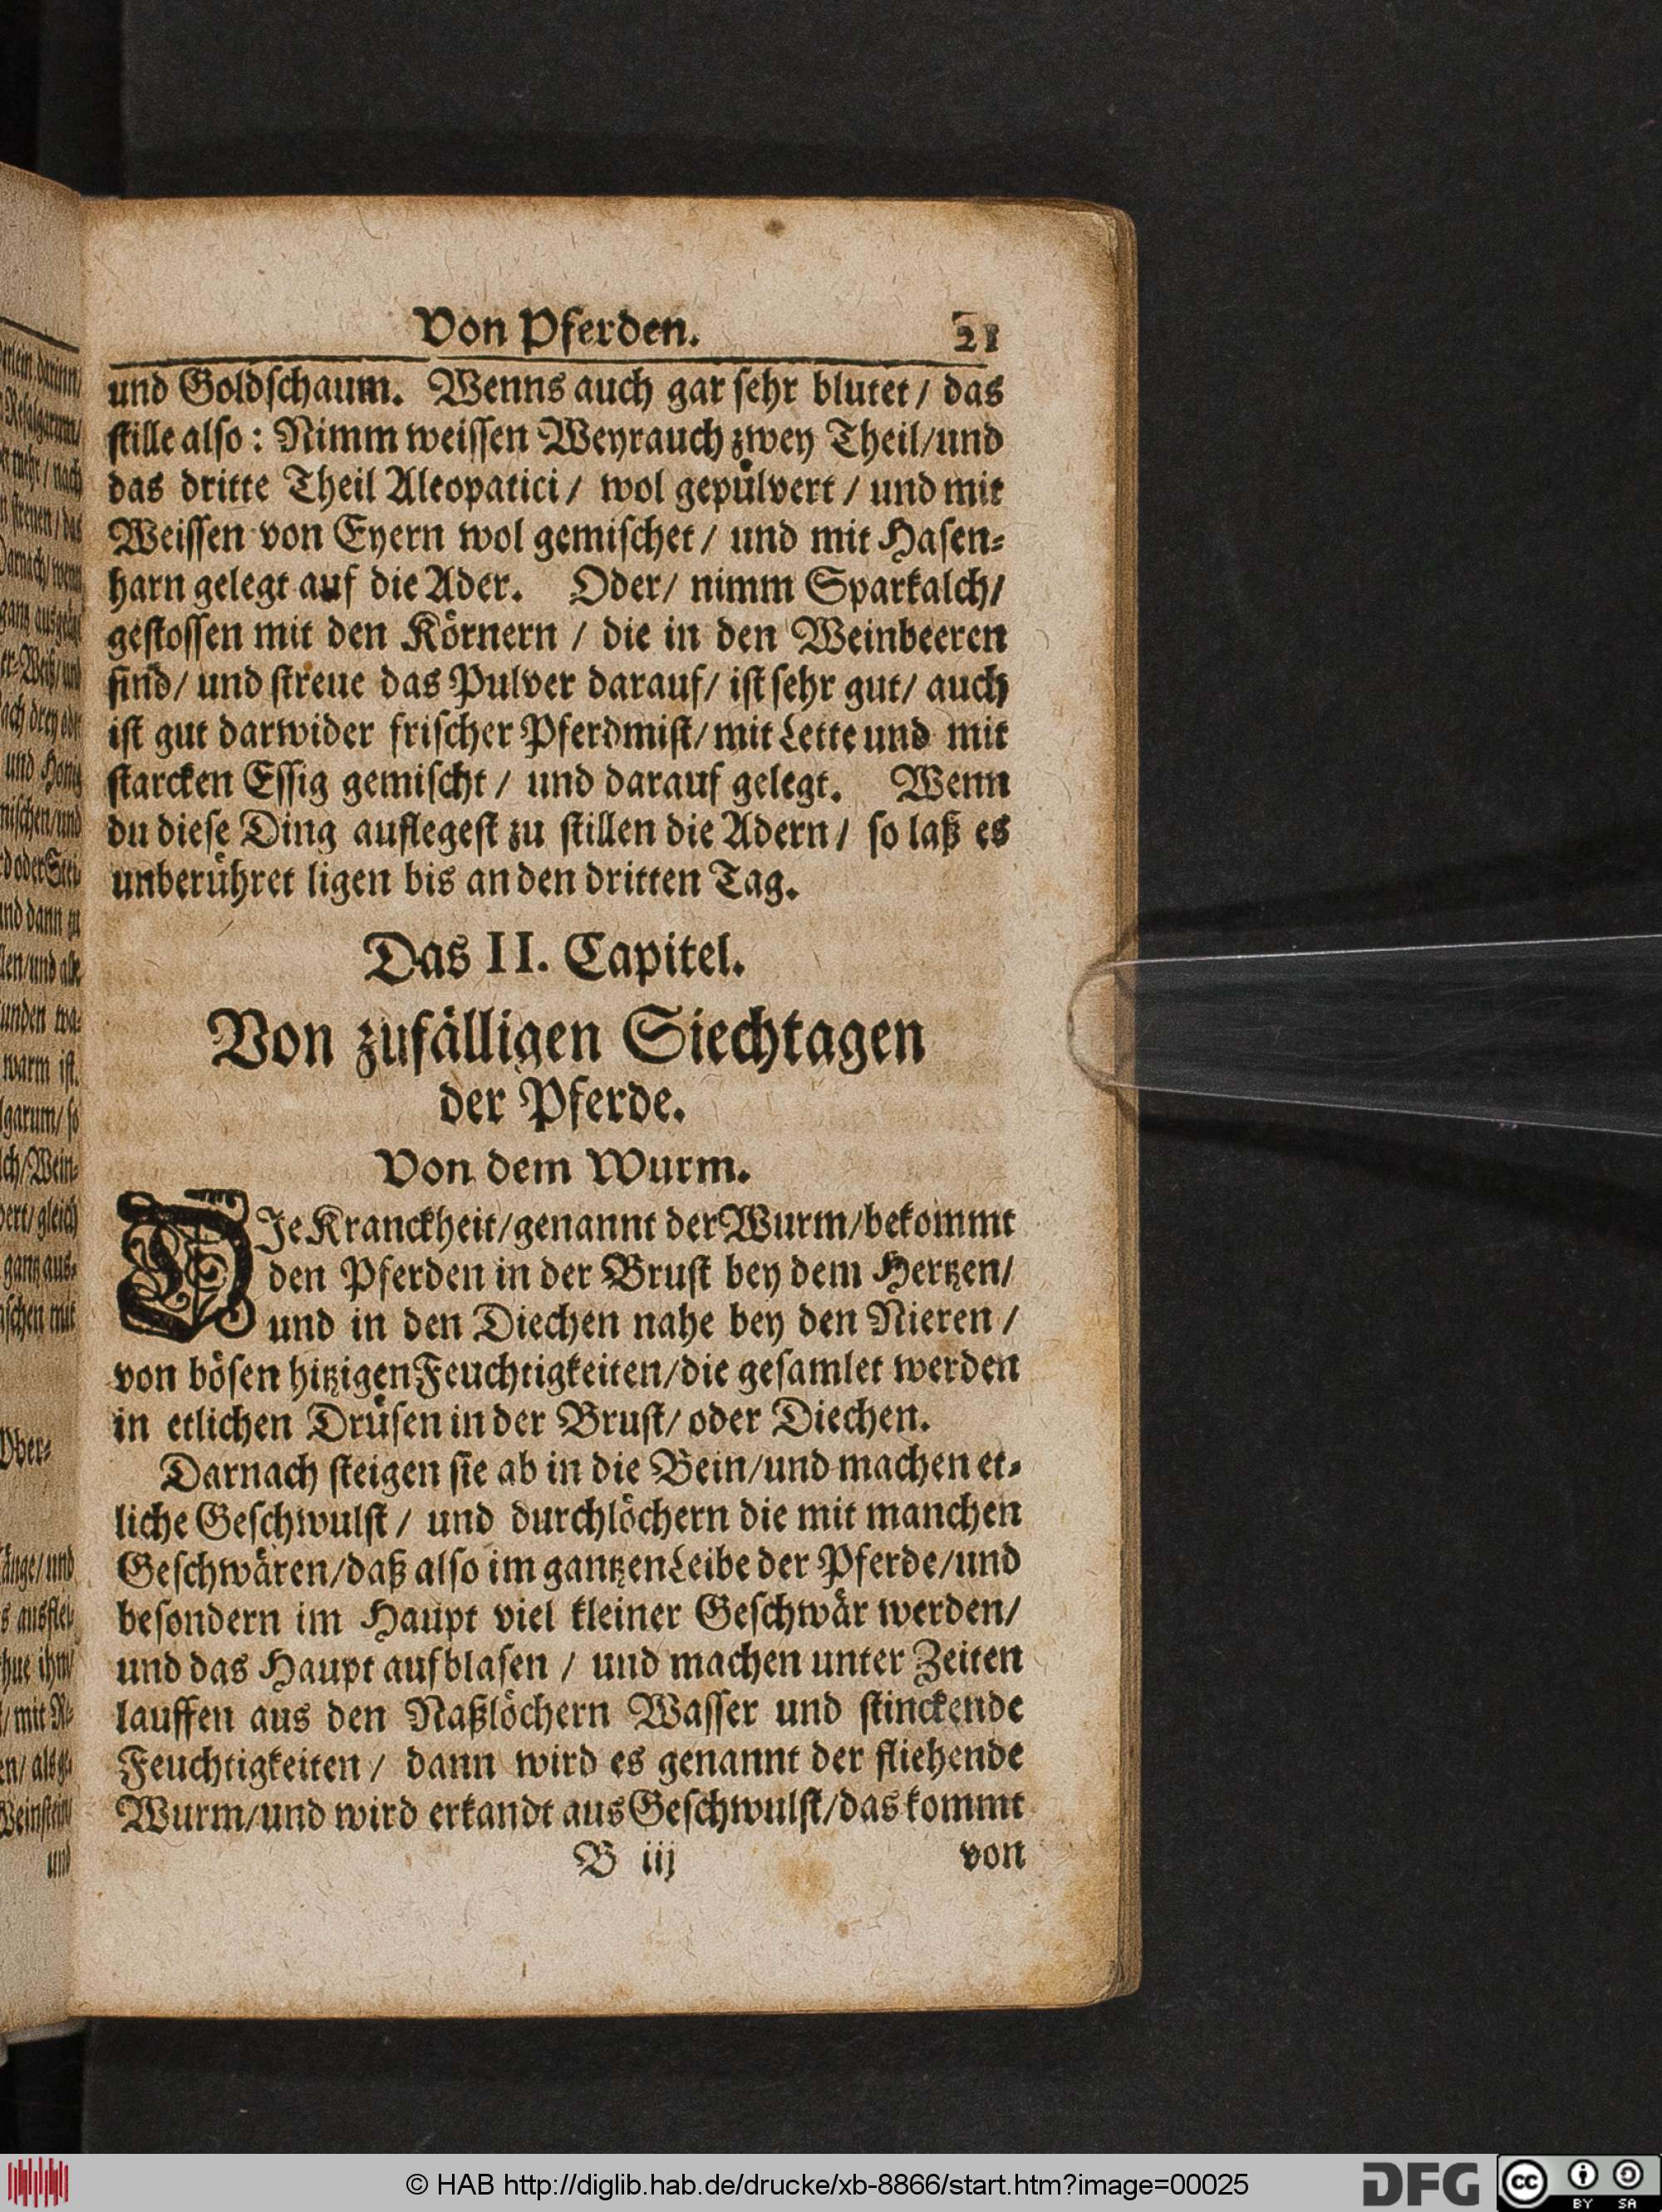 Von Pferden. 21
und Goldschaum. Wenns auch gar sehr blutet / das
stille also: Nimm weissen Weyrauch zwey Theil/und
das dritte Theil Aleopatici / wol gepülvert / und mit
Weissen von Eyern wol gemischet / und mit Hasen-
harn gelegt auf die Ader. Oder/ nimm Sparkalch/
gestossen mit den Körnern / die in den Weinbeeren
sind/ und streue das Pulver darauf/ ist sehr gut/ auch
ist gut darwider frischer Pferdmist/ mit Lette und mit
starcken Essig gemischt / und darauf gelegt. Wenn
du diese Ding auflegest zu stillen die Adern / so laß es
unberühret ligen bis an den dritten Tag.
Das II. Capitel.
Von zufälligen Siechtagen
der Pferde.
Von dem Wurm.
DIe Kranckheit/genannt der Wurm/bekommt
den Pferden in der Brust bey dem Hertzen/
und in den Diechen nahe bey den Nieren /
von bösen hitzigen Feuchtigkeiten/die gesamlet werden
in etlichen Drüsen in der Brust/ oder Diechen.
Darnach steigen sie ab in die Bein/und machen et-
liche Geschwulst / und durchlöchern die mit manchen
Geschwären/daß also im gantzen Leibe der Pferde/und
besondern im Haupt viel kleiner Geschwär werden/
und das Haupt aufblasen / und machen unter Zeiten
lauffen aus den Naßlöchern Wasser und stinckende
Feuchtigkeiten / dann wird es genannt der fliehende
Wurm/und wird erkandt aus Geschwulst/das kommt
B iij von
© HAB http://diglib.hab.de/drucke/xb-8866/start.htm?image=00025
DFG
cc BY SA